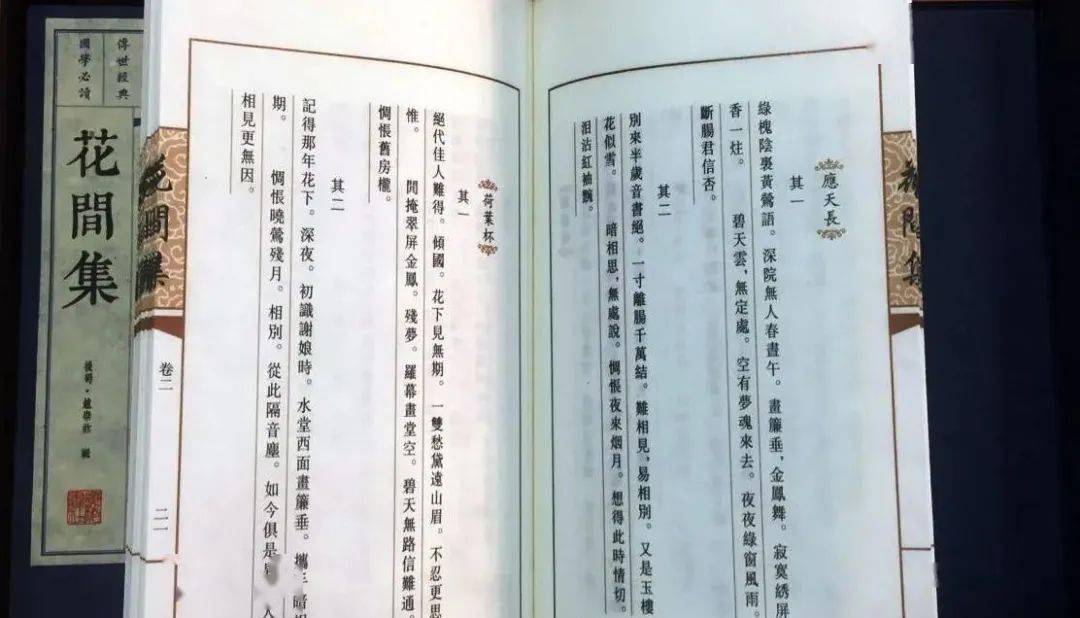 應天長
其一
綠槐陰裏黃鶯語。深院無人春晝午。畫簾垂,金鳳舞。寂寞綉屏
香一炷。　碧天雲,無定處。空有夢魂來去。夜夜綠窗風雨。
斷腸君信否。
其二
別來半歲音書絕。一寸離腸千萬結。難相見,易相別。又是玉樓
花似雪。　暗相思,無處說。惆悵夜來烟月。想得此時情切。
淚沾紅袖黦。
間集
荷葉杯
其一
絕代佳人難得。傾國。花下見無期。一雙愁黛遠山眉。不忍更思
惟。　閒掩翠屏金鳳。殘夢。羅幕畫堂空。碧天無路信難通。
惆悵舊房櫳。
其二
記得那年花下。深夜。初識謝娘時。水堂西面畫簾垂。攜手暗
期。　惆悵曉鶯殘月。相別。從此隔音塵。如今俱是 人
相見更無因。
花間集
卷二
二一
傳世經典
國學必讀
花間集
後蜀·趙崇祚 輯